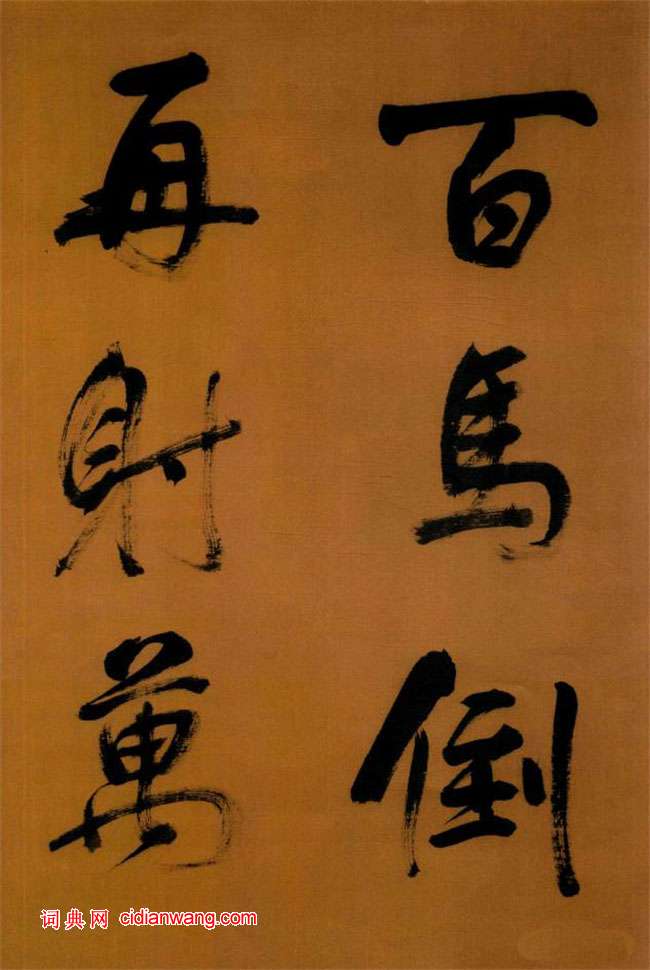 百馬倒
再射萬
词典网 cidianwang.com